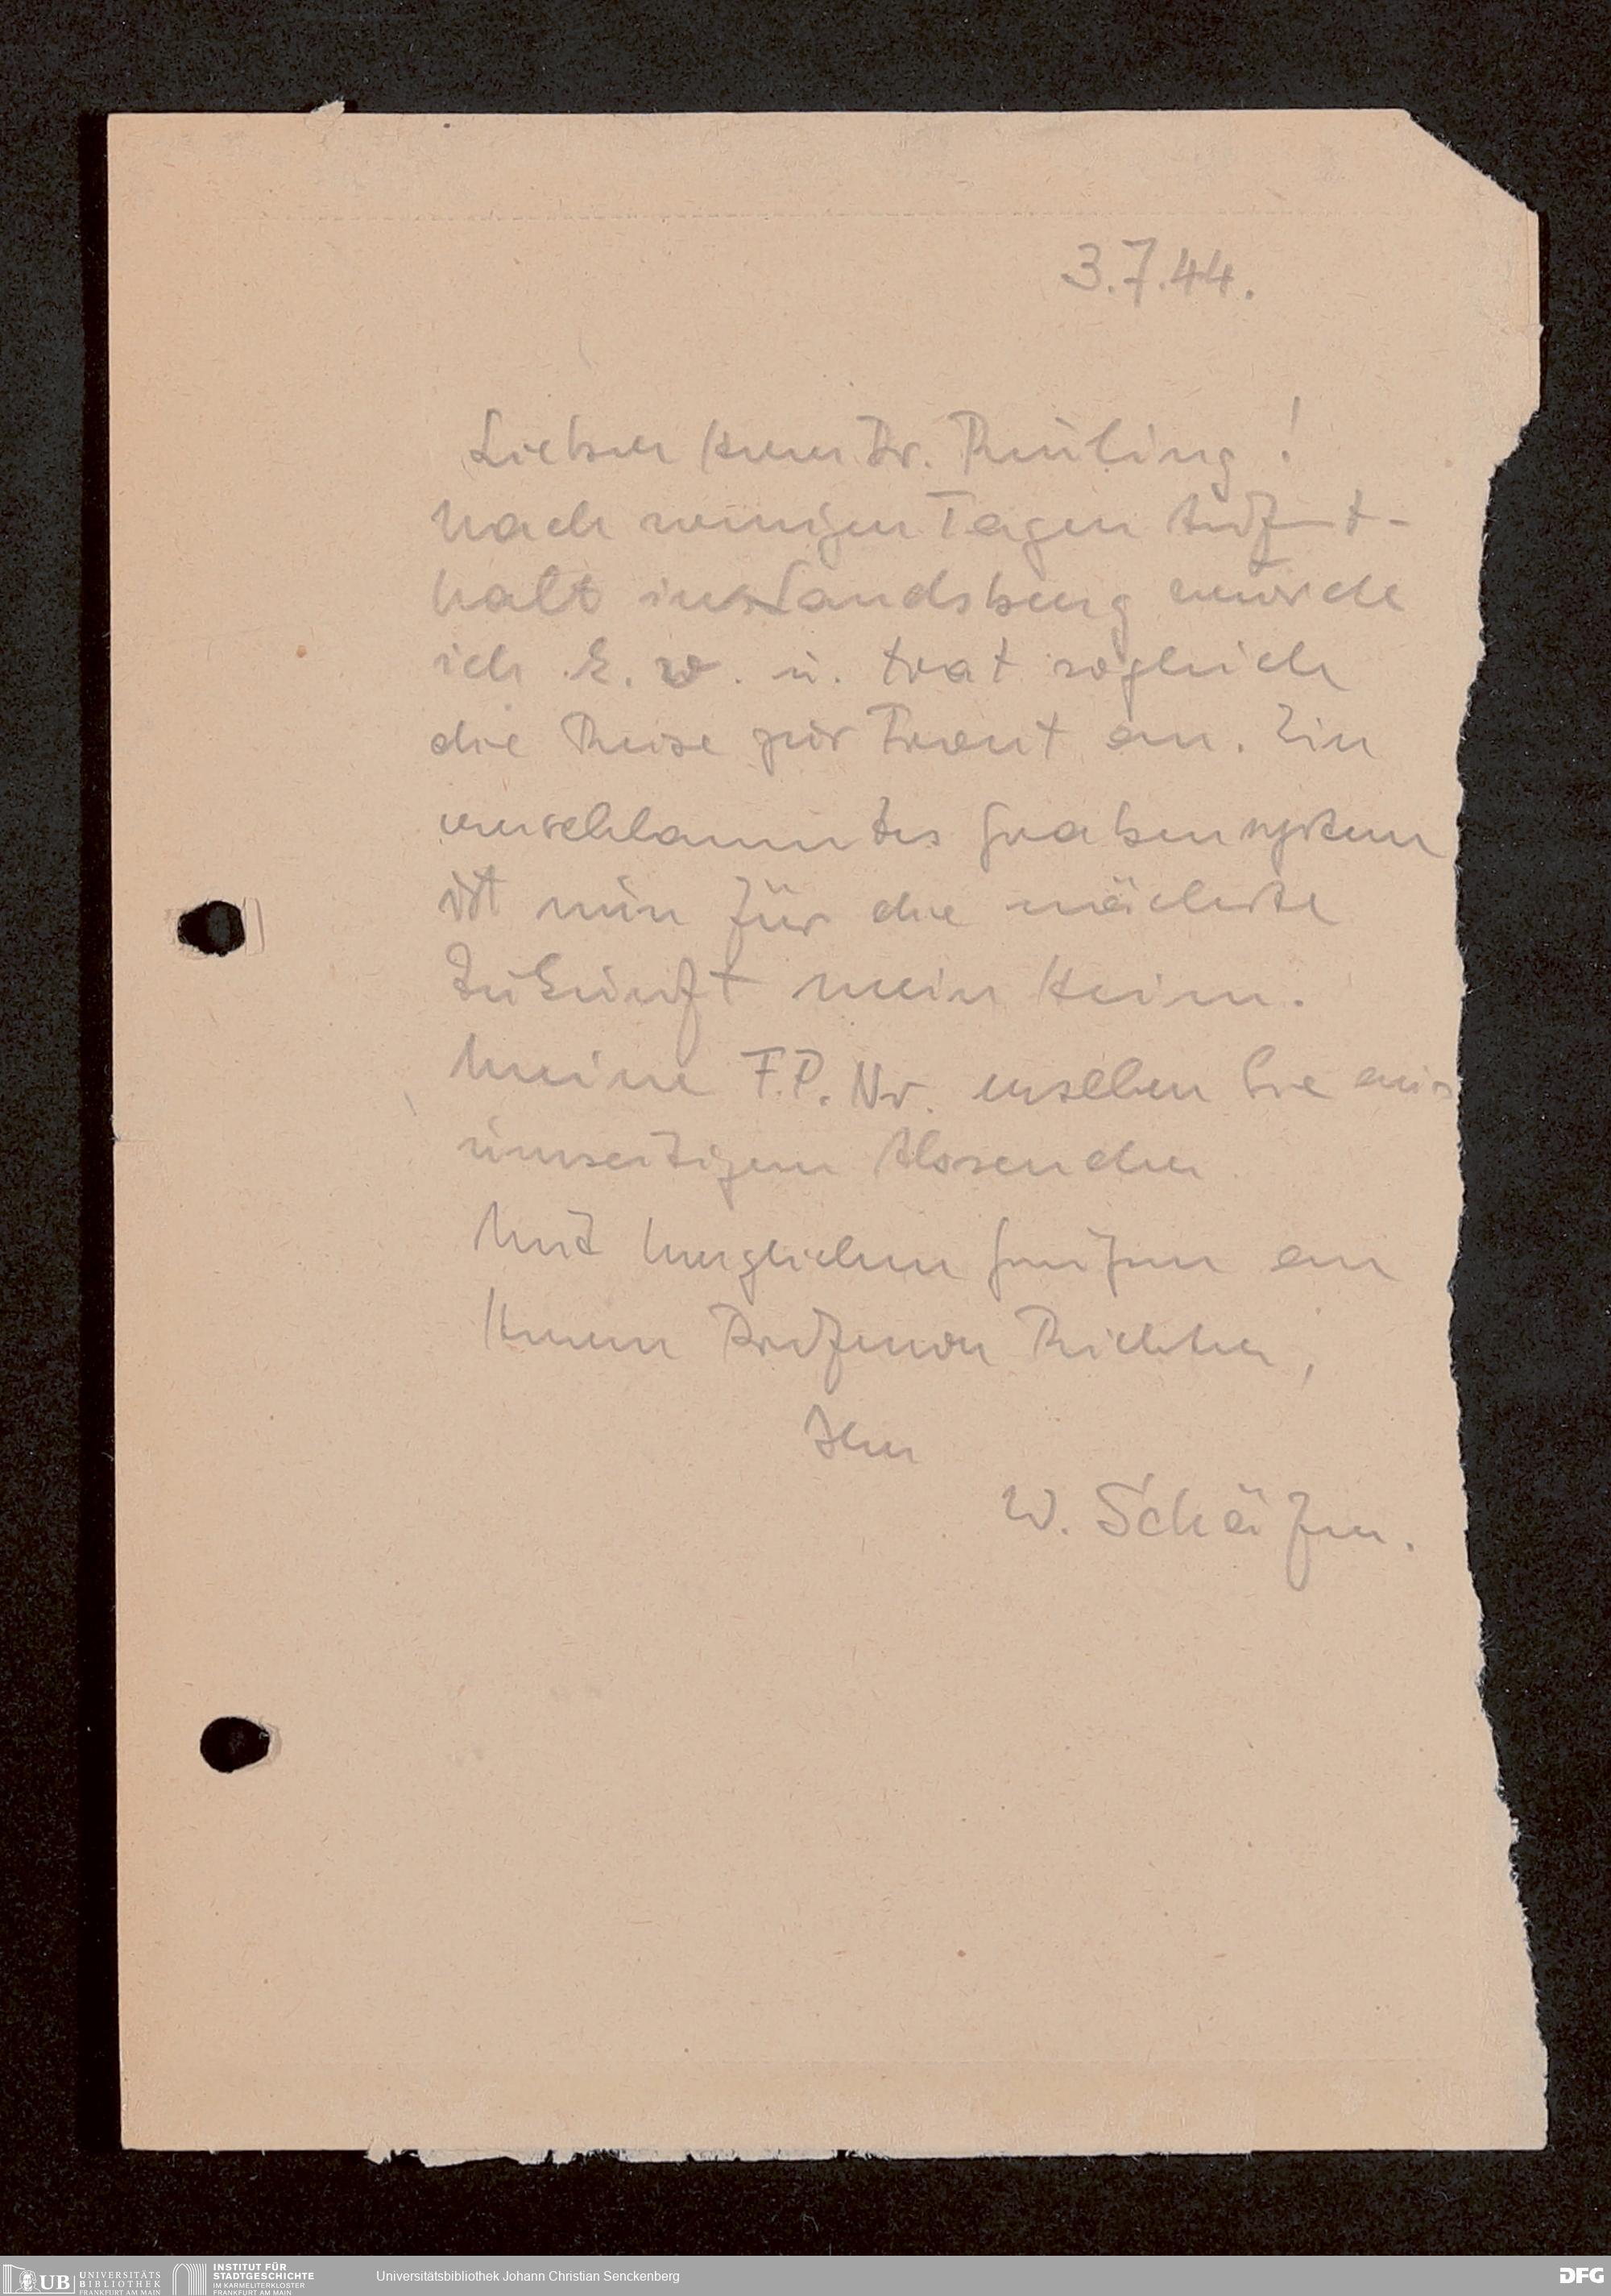 3.7.44.
Lieber Herr Dr. Reuling!
Nach wenigen Tagen Aufent-
halt in Landsberg wurde
ich k.v. u. trat sogleich
die Reise zur Front an. Ein
verschlammtes Grabensystem
ist nun für die nächste
Zukunft mein Heim.
Meine F.P. Nr. ersehen Sie aus
umseitigem Absender.
Mit herzlichen Grüßen an
Herrn Professor Richter,
Ihr
W. Schäfer.
UB UNIVERSITÄTS
BIBLIOTHEK
FRANKFURT AM MAIN
INSTITUT FÜR
STADTGESCHICHTE
IM KARMELITERKLOSTER
FRANKFURT AM MAIN
Universitätsbibliothek Johann Christian Senckenberg
DFG